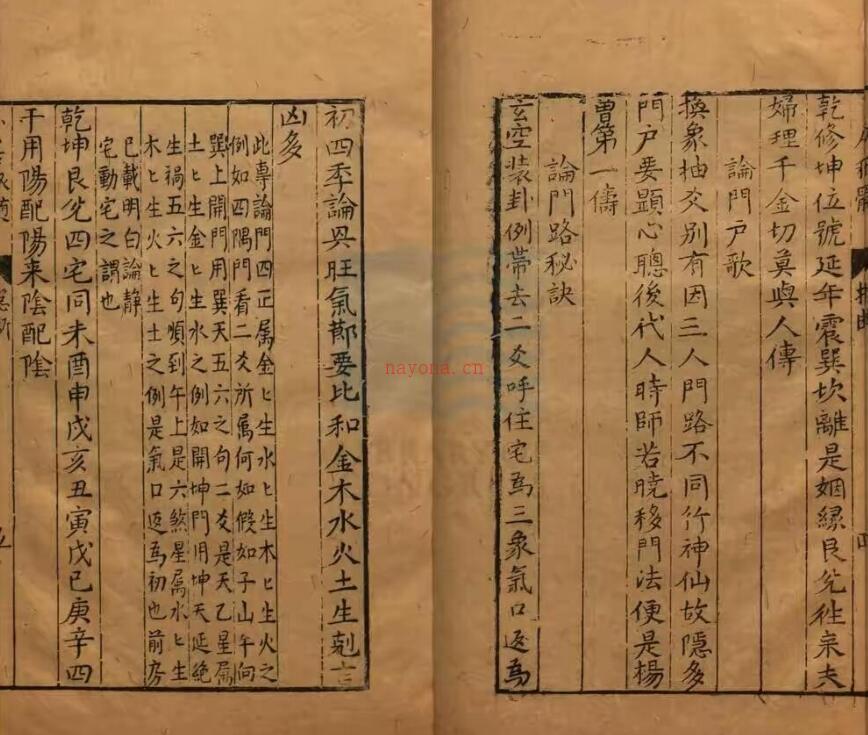 乾修坤位號延年震巽坎離是姻緣艮兊徃来夫
婦理千金切莫與人傳
論門户歌
換象抽爻别有因三人門路不同行神仙故隱多
門户要顯心聰後代人時師若曉移門法便是楊
曾第一儔
論門路秘訣
玄空装卦例帶去二爻呼住宅為三象氣口返為
初四季論吳旺氣節要比和金木水火土生剋言
凶多
此專論門四正属金匕生水匕生木匕生火之
例如四隅門看二爻所属何如假如子山午向
巽上開門用巽天五六之句二爻是天乙星属
土匕生金匕生水之例如開坤門用坤天延絶
生禍五六之句順到午上是六煞星属水匕生
木匕生火匕生土之例是氣口返為初也前房
已載明白論静
宅動宅之謂也
乾坤艮兊四宅同未酉申戌亥丑寅戊己庚辛四
干用陽配陽来陰配陰
nayona.cn